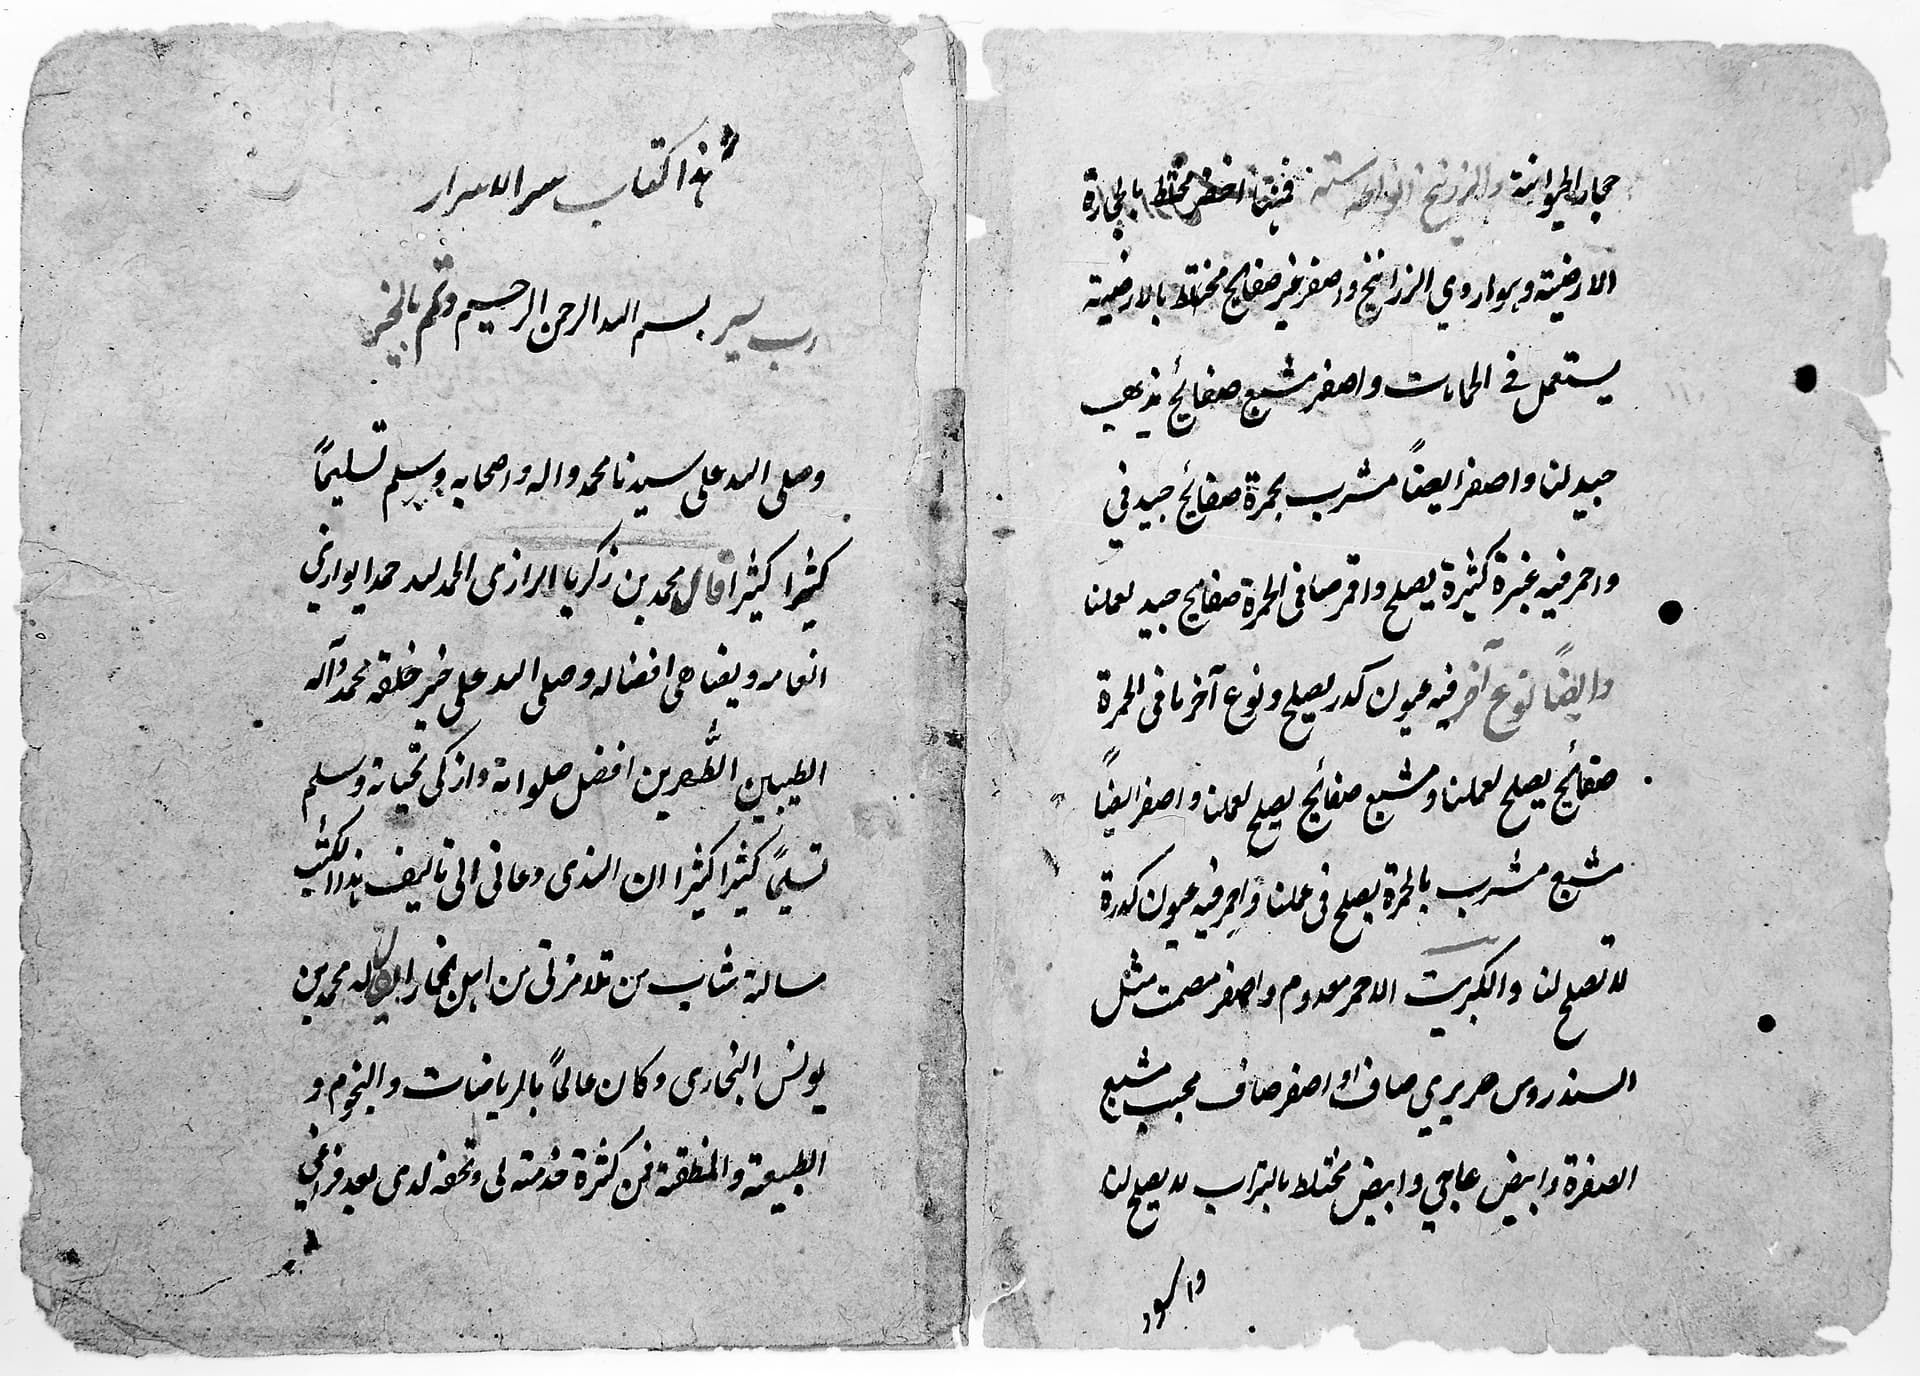 حجار الحيوانية والزرنيخ انواطه ستة فمنها اخضر مختلط بالحجارة
الارضية وهو اردي الزرانيخ واصفر غير صفايح مختلط بالارضية
يستعمل في الحمامات واصفر مشبع صفائح يذهب
جيد لنا واصفر ايضاً مشرب بحمرة صفائح جيد في
واحمر فيه غبرة كثيرة يصلح واقمر صافى الحمرة صفايح جيد لعملنا
وايضاً نوع آخر فيه عيون كدر يصلح ونوع آخر نافى الحمرة
صفائح يصلح لعملنا ومشبع صفائح يصلح لعملنا واصفر ايضاً
مشبع مشرب بالحمرة يصلح فى عملنا واحمر فيه عيون كدرة
لا تصلح لنا والكبريت الاحمر معدوم واصفر مصمت مثل
السندروس حريري صاف او اصفر صاف محبب مشبع
الصفرة وابيض عاجي وابيض مختلط بالتراب لا يصلح لنا
واسود
هذا كتاب سر الاسرار
رب يسر بسم الله الرحمن الرحيم وتمم بالخير
وصلى الله على سيدنا محمد واله واصحابه وسلم تسليماً
كثيرا كثيرا قال محمد بن زكريا الرازى الحمد لله حمدا يوازي
انعامه ويضاهى افضاله وصلى الله على خير خلقه محمد وآله
الطيبين الطَّهرين افضل صلواته وازكى تحياته وسلم
تسليماً كثيرا كثيرا ان الذى دعانى الى تاليف هذا الكتب
مسالة شاب من تلامزتى من اهل بخارا يقال له محمد بن
يونس البخارى وكان عالماً بالرياضات والنجوم و
الطبيعة والمنطقة فمن كثرة خدمته لى وتحفه لدى بعد فراغي